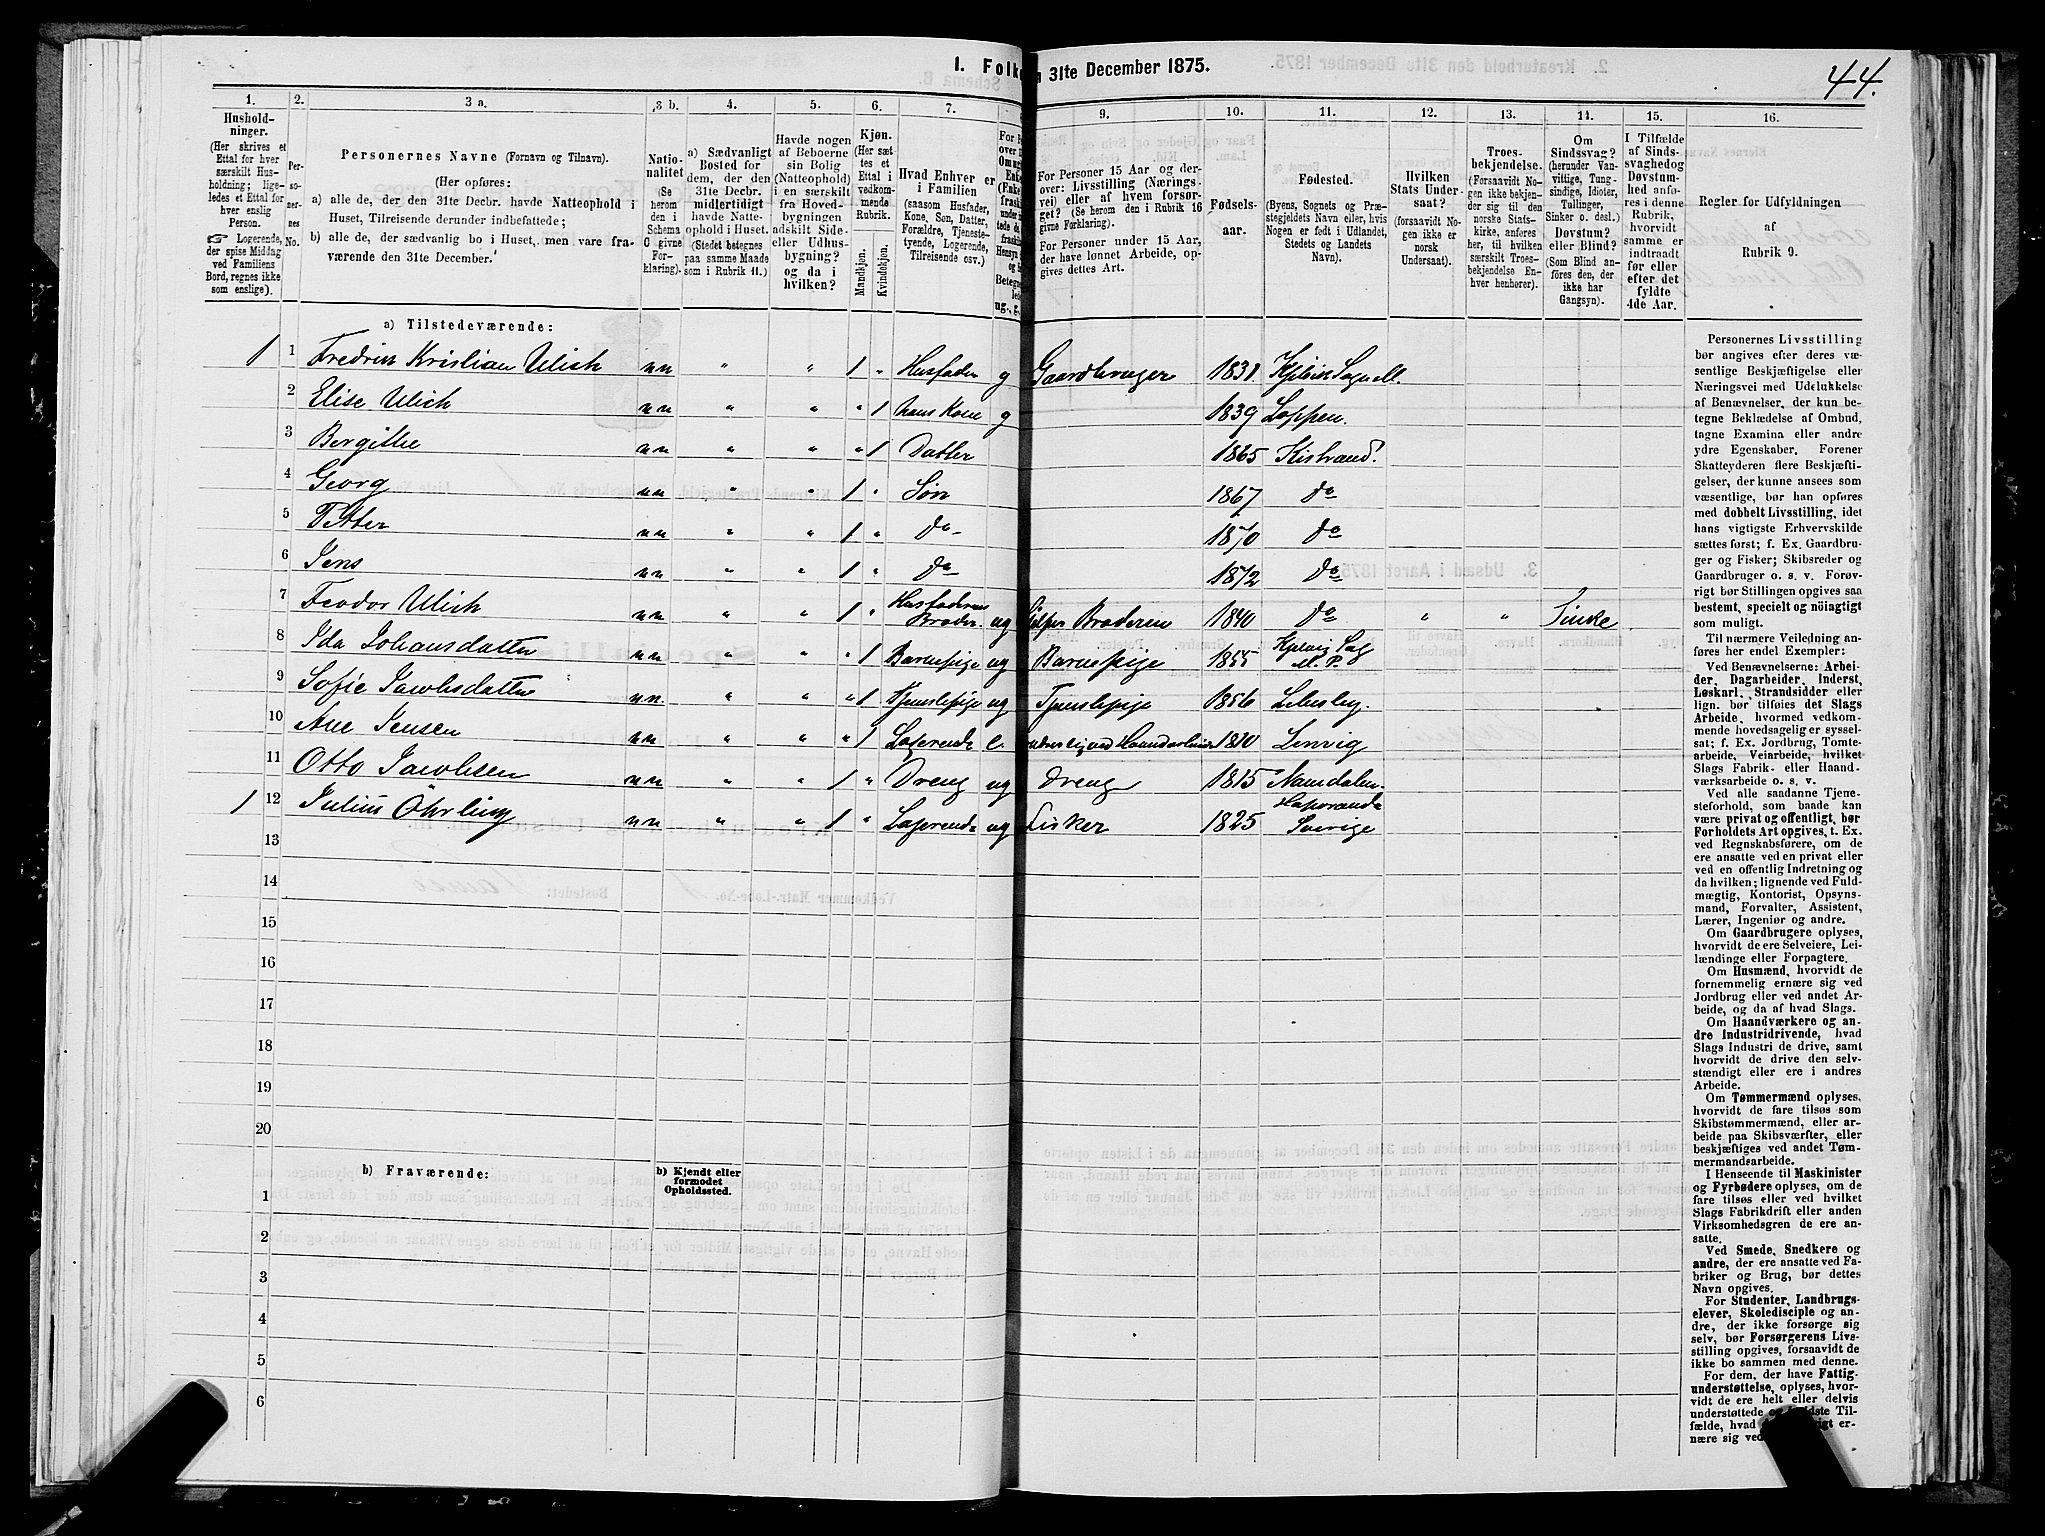 I. Folke
n 31te December 1875.
44.
1.
2.
3 a.
3 b.
4.
5.
6.
7.
9.
10.
11.
12.
13.
14.
15.
16.
Hushold-
ninger.
(Her skrives et
Ettal for hver
særskilt Hus-
holdning; lige-
ledes et Ettal for
hver enslig
Person.
☞ Logerende,
der spise Middag
ved Familiens
Bord, regnes ikke
som enslige).
Per-
so-
ner-
nes
No.
Personernes Navne (Fornavn og Tilnavn).
(Her opføres:
a) alle de, der den 31te Decbr. havde Natteophold i
Huset, Tilreisende derunder indbefattede;
b) alle de, der sædvanlig bo i Huset, men vare fra-
værende den 31te December.
Natio-
nalitet
(Se
herom
den i
Schema
C givne
For-
klaring).
a) Sædvanligt
Bosted for
dem, der den
31te Decbr.
midlertidigt
havde Natte-
ophold i Huset.
(Stedet betegnes
paa samme Maade
som i Rubrik 11.)
Havde nogen
af Beboerne
sin Bolig
(Natteophold)
i en særskilt
fra Hoved-
bygningen
adskilt Side-
eller Udhus-
bygning?
og da i
hvilken?
Kjøn.
(Her sæt-
tes et
Ettal i
vedkom-
mende
Rubrik.
Mandkjøn.
Kvindekjøn.
Hvad Enhver er
i Familien
(saasom Husfader,
Kone, Søn, Datter,
Forældre, Tjeneste-
tyende, Logerende,
Tilreisende osv.)
For Personer 15 Aar og der-
over: Livsstilling (Nærings-
vei) eller af hvem forsør-
get? (Se herom den i Rubrik 16
givne Forklaring).
For Personer under 15 Aar,
der have lønnet Arbeide, op-
gives dettes Art.
Fødsels-
aar.
Fødested.
(Byens, Sognets og Præ-
stegjeldets Navn eller, hvis
Nogen er født i Udlandet,
Stedets og Landets
Navn).
Hvilken
Stats Under-
saat?
(forsaavidt No-
gen ikke er
norsk
Undersaat).
Troes-
bekjendelse.
(Forsaavidt No-
gen ikke bekjen-
der sig til den
norske Stats-
kirke, anføres
her, til hvilken
særskilt Troes-
bekjendelse En-
hver henhører).
Om
Sindssvag?
(herunder Van-
vittige, Tung-
sindige, Idioter,
Tullinger,
Sinker o. desl.)
Døvstum?
eller Blind?
(Som Blind an-
føres den, der
ikke har
Gangsyn).
I Tilfælde
af Sinds-
svaghed og
Døvstum-
hed anfø-
res i denne
Rubrik,
hvorvidt
samme er
indtraadt
før eller
efter det
fyldte
4de Aar.
Regler for Udfyldningen
af
Rubrik 9.
a) Tilstedeværende:
1 1 Fredrik Kristian Ulich n n " " 1 " Husfader g Gaardbruger 1838
2 Elise Ulich n n " " " 1 hans Kone g 1839 Loppen.
3 Bergithe n n " " " 1 Datter 1865 Kistrand.
4 Georg n n " " 1 " Søn 1867 do
5 Petter n n " " 1 " do 1870 do
6 Jens n n " " 1 " do 1872 do
7 Feodor Ulich n n " " 1 " Husfaderens Broder ug Hjelper Broderen 1840 do " " Sinke
8 Ida Johansdatter n n " " " 1 Barnepige ug Barnepige 1855
9 Sofie Jacobsdatter n n " " " 1 Tjenstepige ug Tjenstepige 1856 Lebesby.
10 Ane Jensen n n " " " 1 Logerende e. 1810 Lenvig
11 Otto Jacobsen n n " " 1 " Dreng ug Dreng 1815 Namdalen.
1 12 Julius Öhrling n n " " 1 " Logerende ug Fisker 1825 Haparanda Sverige
13
14
15
16
17
18
19
20
b) Fraværende:
b) Kjendt eller
formodet
Opholdssted.
1
2
3
4
5
6
Personernes Livsstilling
bør angives efter deres væ-
sentlige Beskjæftigelse eller
Næringsvei med Udelukkelse
af Benævnelser, der kun be-
tegne Beklædelse af Ombud,
tagne Examina eller andre
ydre Egenskaber. Forener
Skatteyderen flere Beskjæfti-
gelser, der kunne ansees som
væsentlige, bør han opføres
med dobbelt Livsstilling, idet
hans vigtigste Erhvervskilde
sættes først; f. Ex. Gaardbru-
ger og Fisker; Skibsreder og
Gaardbruger o. s. v. Forøv-
rigt bør Stillingen opgives saa
bestemt, specielt og nöiagtigt
som muligt.
Til nærmere Veiledning an-
føres her endel Exempler:
Ved Benævnelserne: Arbei-
der, Dagarbeider, Inderst,
Løskarl, Strandsidder eller
lign. bør tilføies det Slags
Arbeide, hvormed vedkom-
mende hovedsagelig er syssel-
sat; f. Ex. Jordbrug, Tomte-
arbeide, Veiarbeide, hvilket
Slags Fabrik- eller Haand-
værksarbeide o. s. v.
Ved alle saadanne Tjene-
steforhold, som baade kan
være privat og offentligt, bør
Forholdets Art opgives, t. Ex.
ved Regnskabsførere, om de
ere ansatte ved en privat eller
ved en offentlig Indretning og
da hvilken; lignende ved Fuld-
mægtig, Kontorist, Opsyns-
mand, Forvalter, Assistent,
Lærer, Ingeniør og andre.
Om Gaardbrugere oplyses,
hvorvidt de ere Selveiere, Lei-
lændinge eller Forpagtere.
Om Husmænd, hvorvidt de
fornemmelig ernære sig ved
Jordbrug eller ved andet Ar-
beide, og da af hvad Slags.
Om Haandværkere og an-
dre Industridrivende, hvad
Slags Industri de drive, samt
hvorvidt de drive den selv-
stændigt eller ere i andres
Arbeide.
Om Tømmermænd oplyses,
hvorvidt de fare tilsøs som
Skibstømmermænd, eller ar-
beide paa Skibsværfter, eller
beskjæftiges ved andet Tøm-
mermandsarbeide.
I Henseende til Maskinister
og Fyrbødere oplyses, om de
fare tilsøs eller ved hvilket
Slags Fabrikdrift eller anden
Virksomhedsgren de ere an-
satte.
Ved Smede, Snedkere og
andre, der ere ansatte ved Fa-
briker og Brug, bør dettes
Navn opgives.
For Studenter, Landbrugs-
elever, Skoledisciple og an-
dre, der ikke forsørge sig
selv, bør Forsørgerens Livs-
stilling opgives, forsaavidt de
ikke bo sammen med denne.
For dem, der have Fattig-
understøttelse, oplyses, hvor-
vidt de ere helt eller delvis
understøttede